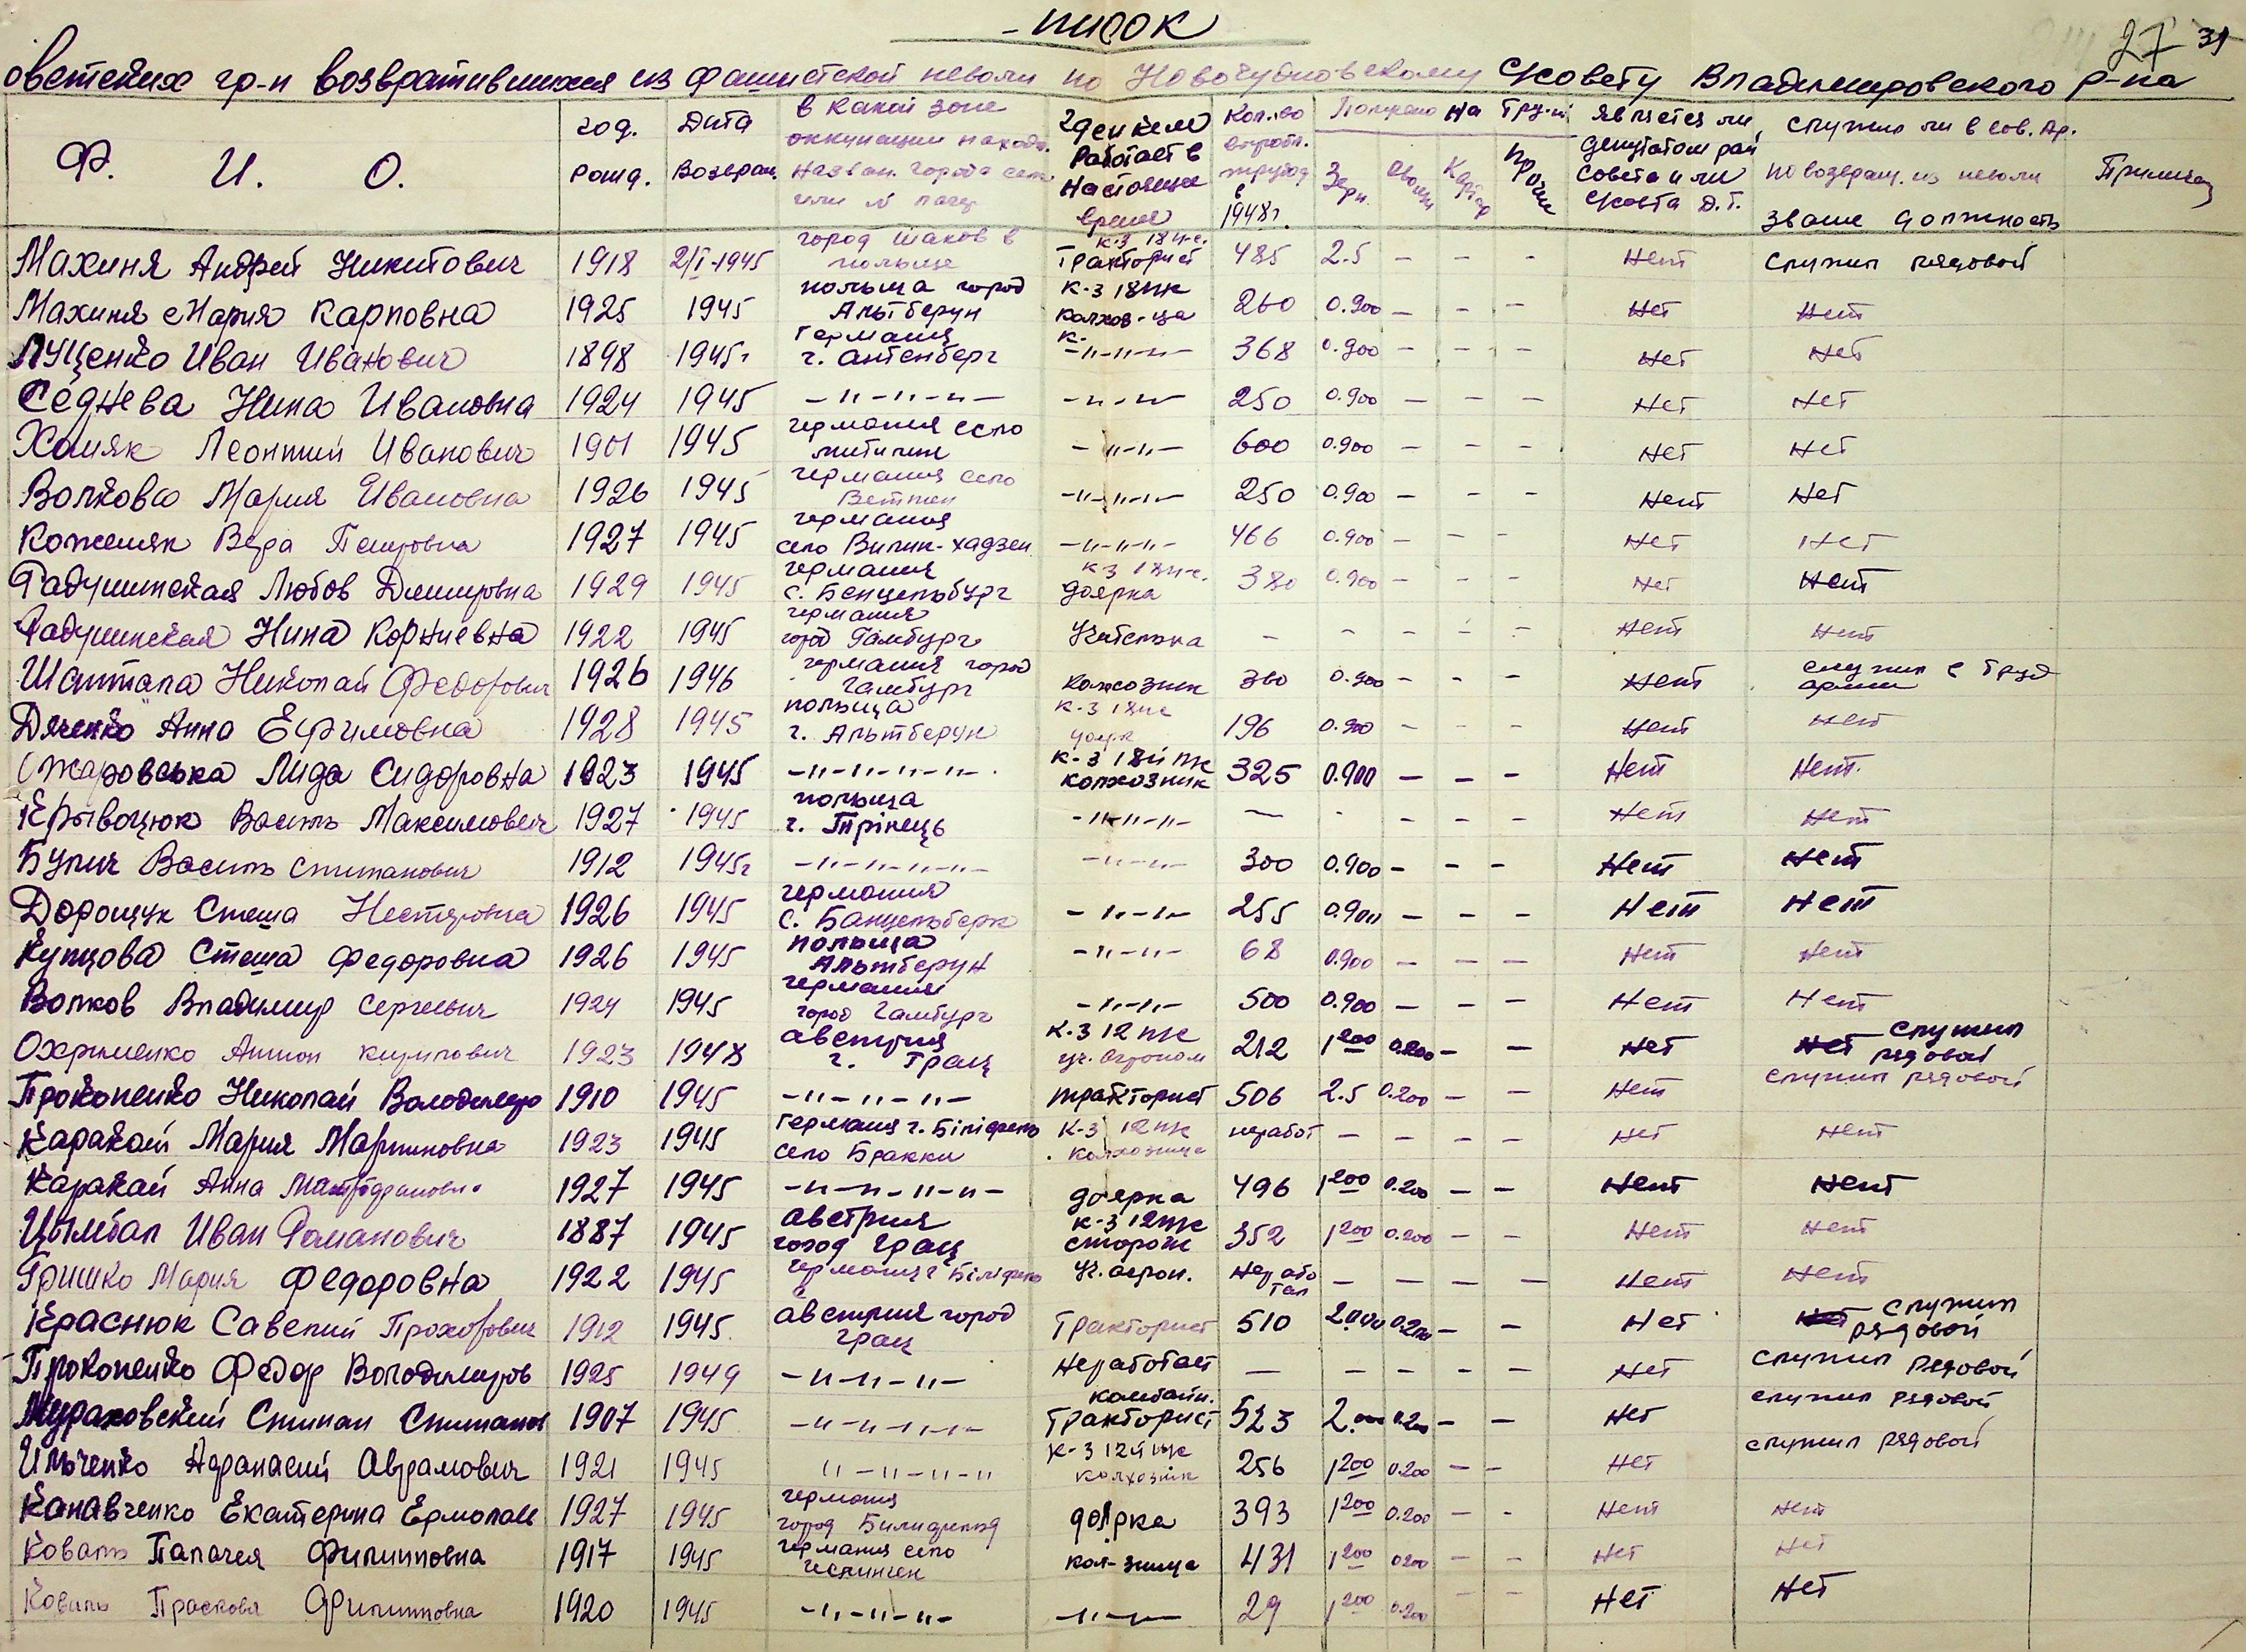 -писок
27 31
оветских гр-н возвратившихся из фашистской неволи по Новочудновскому с/совету Владимировского р-на
Ф. И. О. год. рожд. Дата Возвращ. в какой зоне оккупации находи. Назван. города села или № лагер где и кем Работает в Настоящее время Кол.во выработ. трудод в 1948г. Получено На Труд-н Зерн. Овощи Картоф Прочие является ли депутатом рай совета или с/совета Д.Т. служил ли в сов. Ар. по возвращ. из неволи звание должность Примечан
Махиня Андрей Никитович 1918 2/I-1945 город Шаков в польще к-з 18 п-с. Тракторист 485 2.5 - - - Нет служил рядовой
Махиня Мария Карповна 1925 1945 польша город Альтберун к-з 18ПК колхоз-ца 260 0.900 - - - Нет Нет
Луценко Иван Иванович 1898 1945г Германия г. Антенберг к. -"-"-"- 368 0.900 - - - Нет Нет
Седнева Нина Ивановна 1924 1945 -"-"-"- -"-"- 250 0.900 - - - Нет Нет
Хомяк Леонтий Иванович 1901 1945 германия село -"-"- 600 0.900 - - - Нет Нет
Волкова Мария Ивановна 1926 1945 германия село Веттен -"-"-"- 250 0.900 - - - Нет Нет
Кожемяк Вера Петровна 1927 1945 германия село Вилик-хадзен -"-"-"- 466 0.900 - - - Нет Нет
Радушинская Любов Дмитровна 1929 1945 германия с. Бенцельбург к-з 18п-с. доярка 380 0.900 - - - Нет Нет
Радушинская Нина Корниевна 1922 1945 германия город Гамбург Учителька - - - - - Нет Нет
Шаптала Николай Федорович 1926 1946 германия город Гамбург колхозник 360 0.900 - - - Нет служил в труд армии
Дяченко Анна Ефимовна 1928 1945 польща г. Альтберун к-з 18пс 196 0.900 - - - Нет Нет
Сжаровська Лида Сидоровна 1923 1945 -"-"-"-"- к-з 18й ПК колхозник 325 0.900 - - - Нет Нет.
Крывоцюк Василь Максимович 1927 1945 польща г. Трінець -"-"-"- - - - - - Нет Нет
Булич Василь Степанович 1912 1945г -"-"-"-"- -"-"- 300 0.900 - - - Нет Нет
Дорощук Стеша Нестеровна 1926 1945 германия с. Банцельберк -"-"- 255 0.900 - - - Нет Нет
Купцова Стеша Федоровна 1926 1945 польща Альтберун -"-"- 68 0.900 - - - Нет Нет
Волков Владимир Сергеевич 1924 1945 германия город Гамбург -"-"- 500 0.900 - - - Нет Нет
Охрименко Антон 1923 1948 австрия г. Грац к-з 12 ПК уч. Агроном 212 1200 0.200 - - Нет Нет служил рядовой
Прокопенко Николай Володимир 1910 1945 -"-"-"- тракторист 506 2.5 0.200 - - Нет служил рядовой
Каракай Мария Мартиновна 1923 1945 германия г. Біліфельд село Бракки к-з 12ПК колхозница неработ - - - - Нет Нет
Каракай Анна 1927 1945 -"-"-"-"- доярка 496 1200 0.200 - - Нет Нет
Цымбал Иван Романович 1887 1945 австрия город Грац к-з 12ПК сторож 352 1200 0.200 - - Нет Нет
Гришко Мария Федоровна 1922 1945 германия г Біліфельд Уч. агрон. Нерабо тал - - - - Нет Нет
Краснюк Савелий Прохорович 1912 1945. австрия город Грац Тракторист 510 2.000 0.200 - - Нет Нет служил рядовой
Прокопенко Федор Володимиров 1925 1949 -"-"-"- Неработает - - - - - Нет служил рядовой
Мураховский Степан Степанов 1907 1945 -"-"-"-"- комбайн. Тракторист 523 2.000 0.200 - - Нет служил рядовой
Ильченко Афанасий Аврамович 1921 1945 "-"-"-" к-з 12й ПК колхозник 256 1200 0.200 - - Нет служил рядовой
Канавченко Екатерина Ермолаев 1927 1945 германия город Билифельд доярка 393 1200 0.200 - - Нет Нет
Коваль Палагея Филипповна 1917 1945 германия село кол-зница 431 1200 0.200 - - Нет Нет
Коваль Прасковя Филипповна 1920 1945 -"-"-"- -"-"- 29 1200 0.200 - - Нет Нет